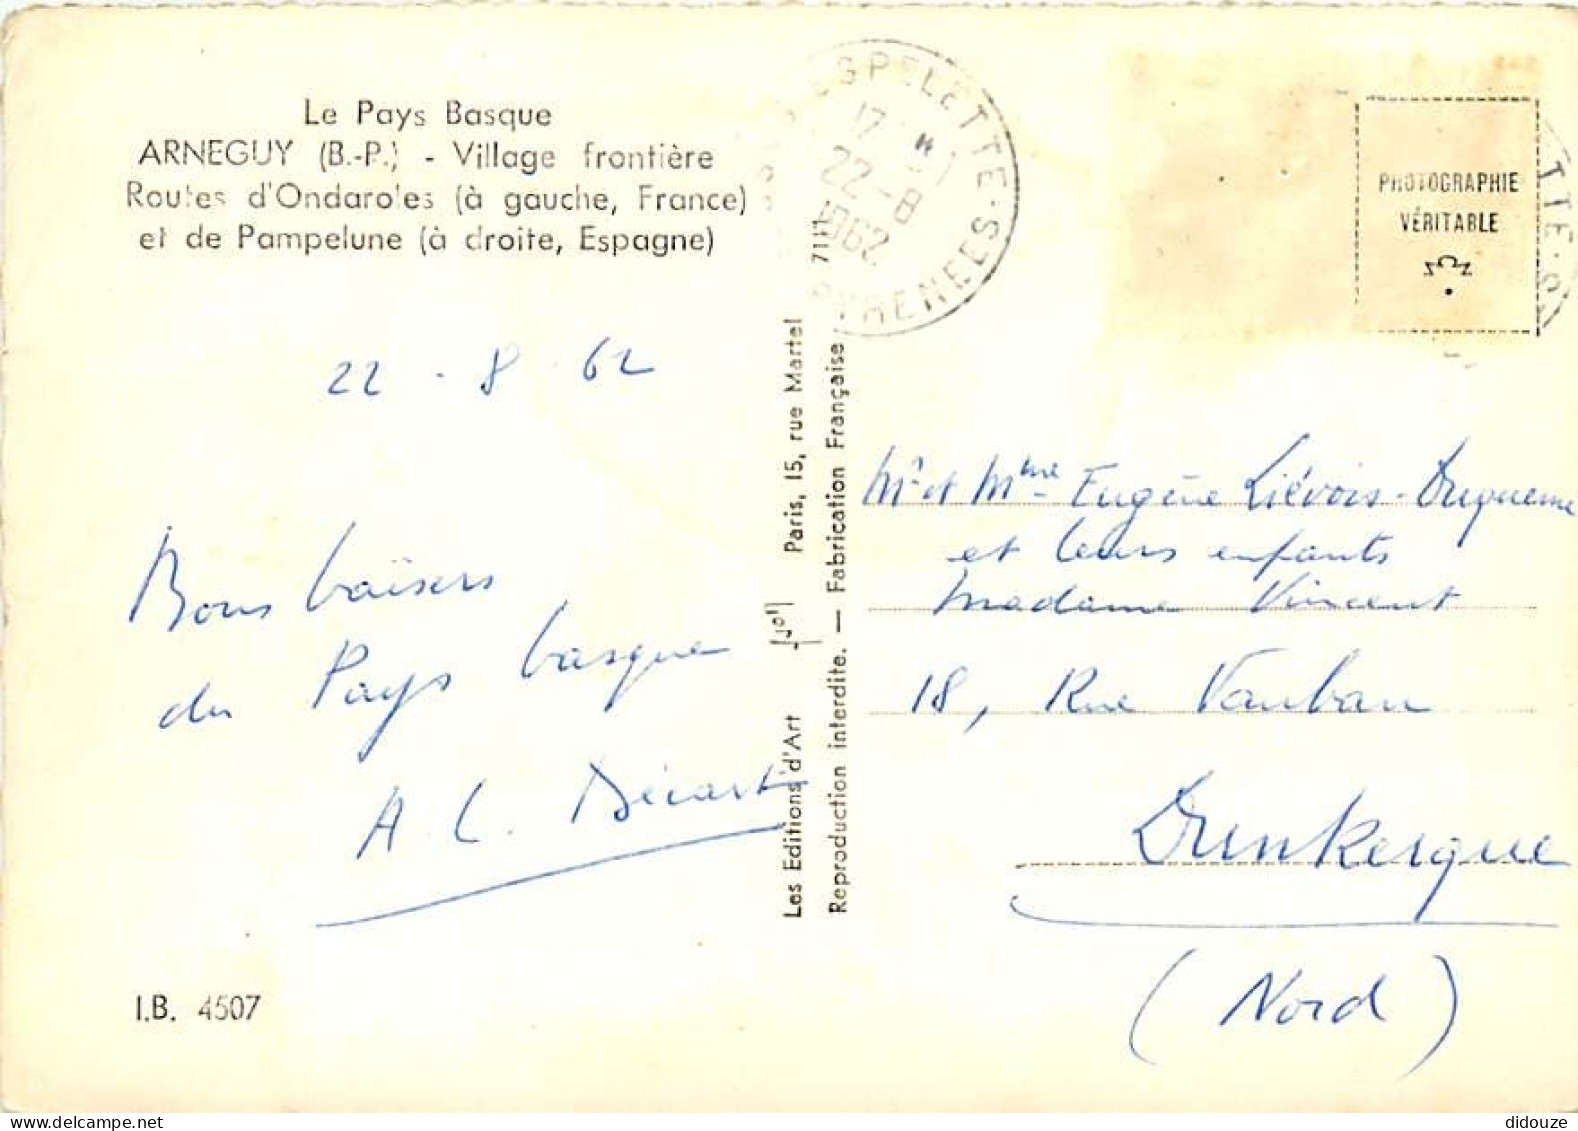 Le Pays Basque
ARNEGUY (B.-P.) - Village frontière
Routes d'Ondaroles (à gauche, France)
et de Pampelune (à droite, Espagne)
22 - 8 - 62
Bons baisers
du Pays basque
A. L. Décart
I.B. 4507
Les Editions d'Art Paris, 15, rue Martel
Reproduction interdite. — Fabrication Française
ESPELETTE
17 H
22-8
1962
PYRENEES
PHOTOGRAPHIE
VÉRITABLE
Mr et Mme Eugène Liévois-Duqueme
et leurs enfants
Madame Vincent
18, Rue Vauban
Dunkerque
(Nord)
didouze